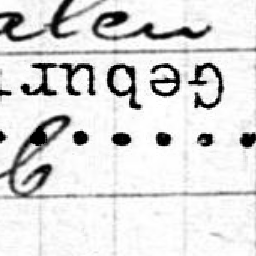 alen
Geburt